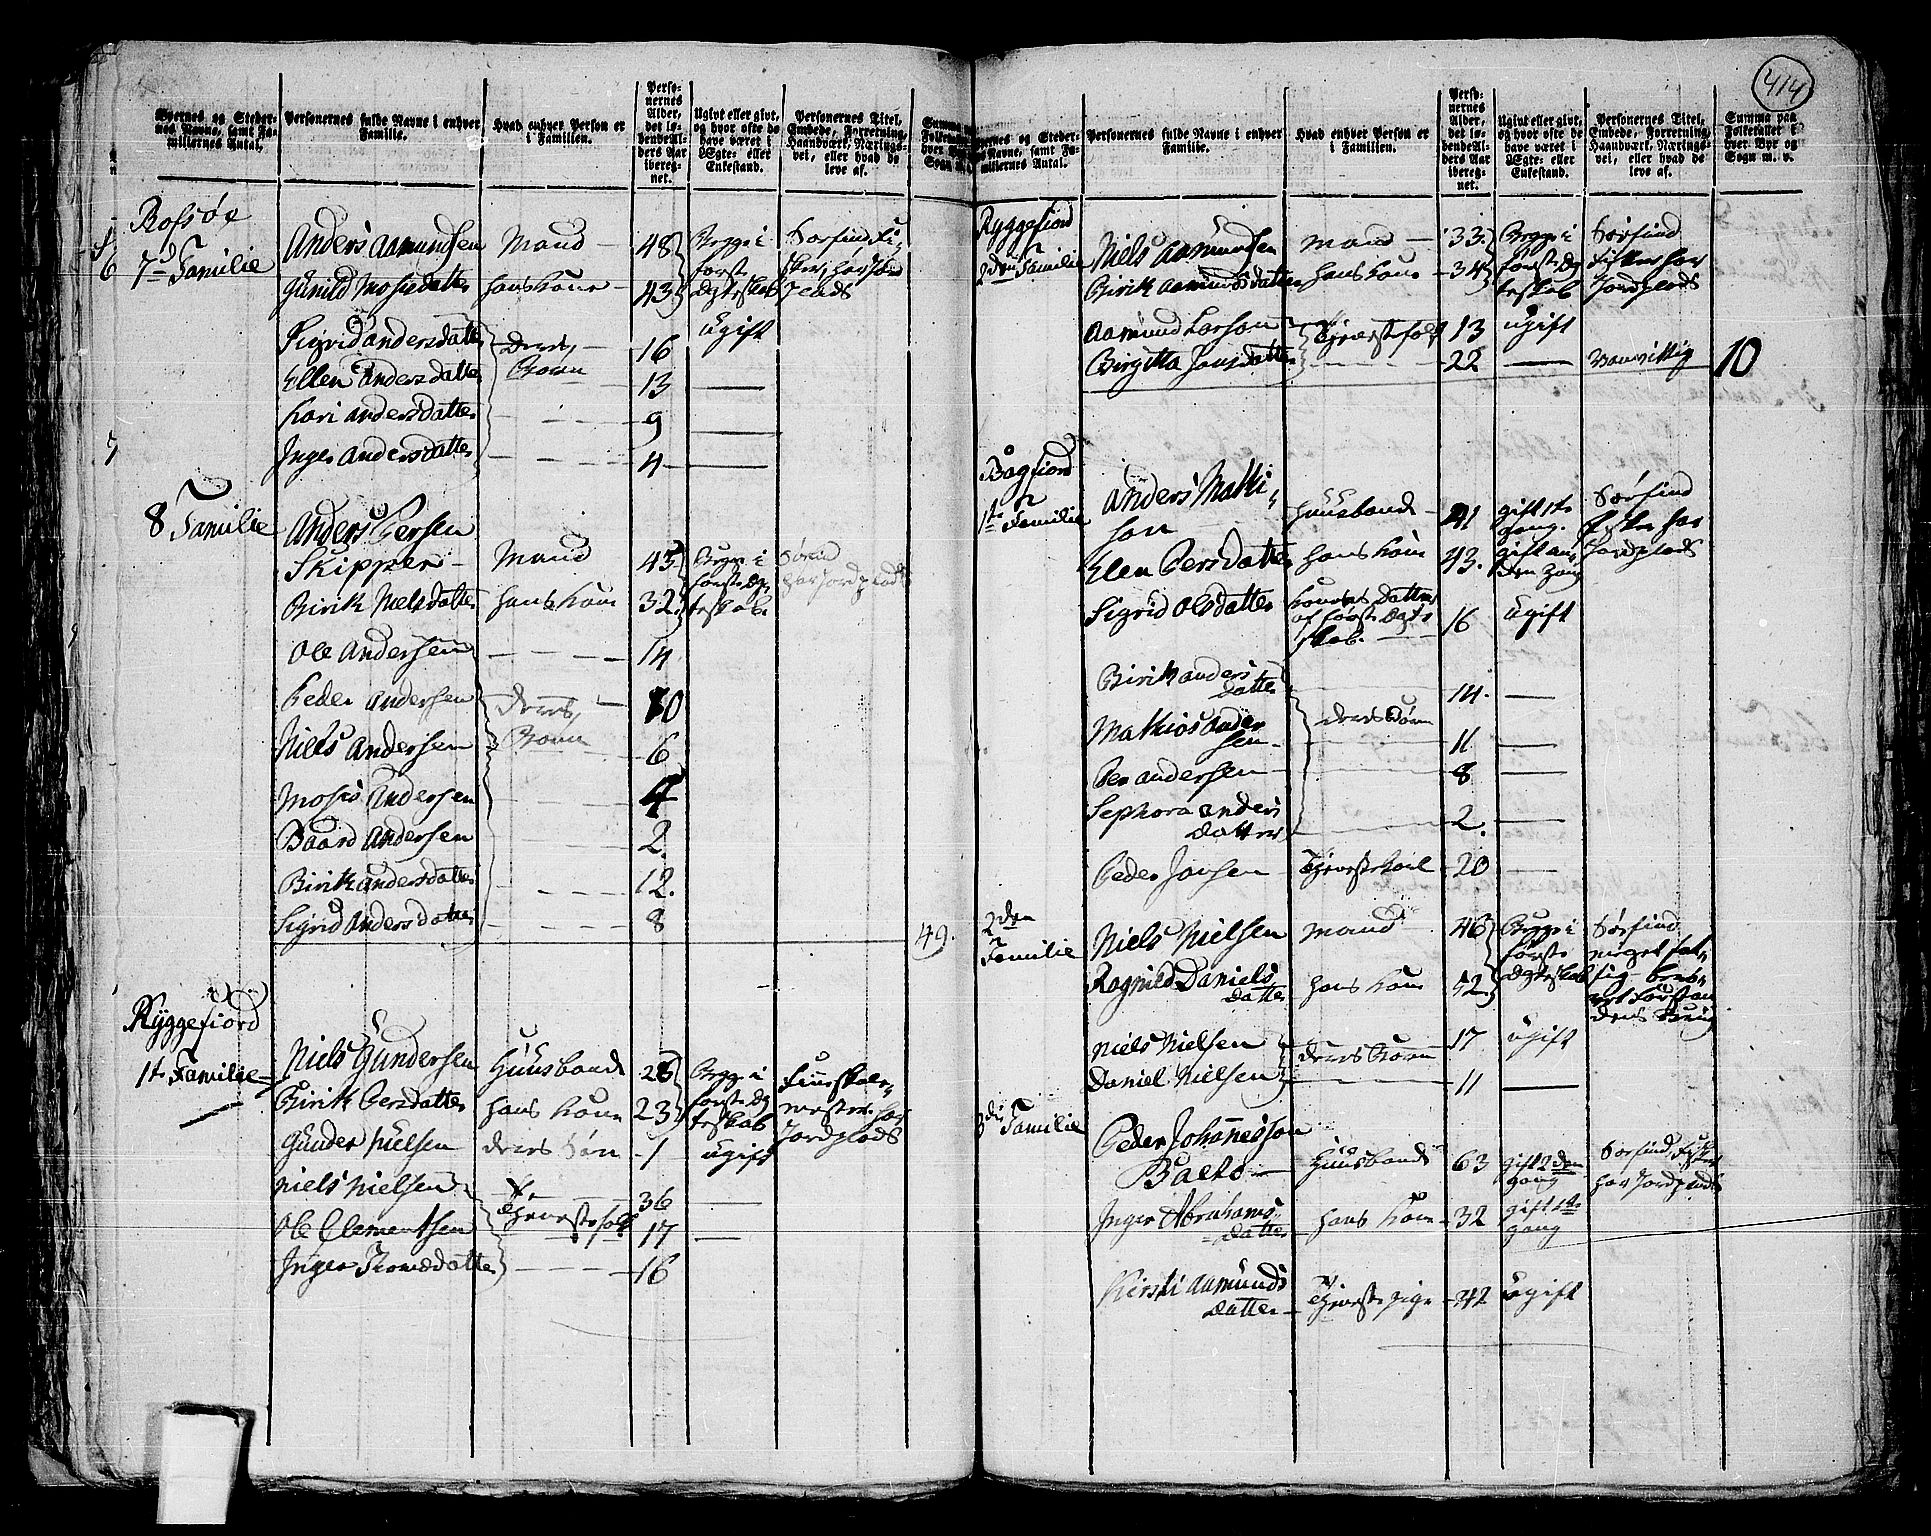 414
Byernes og Steder-
nes Navne, samt Fa-
miliernes Antal.
Personernes fulde Navne i enhver
Familie.
Hvad enhver Person er
i Familien.
Perso-
nernes
Alder,
det lø-
bende Al-
ders Aar
ibereg-
net.
Ugivt eller givt,
og hvor ofte de
have været i
Ægte- eller
Enkestand.
Personernes Titel,
Embede, Forretning,
Haandværk, Nærings-
vei, eller hvad de
leve af.
Rossøe
7de Familie
Anders Aamundsen Mand 48 Begge i Søefind Fi-
første sker, har Jor
Gunild Mosesdatter hans Kone 43 Ægteskab Plads
Sigrid Andersdatter deres 16 ugift
Ellen Andersdatter Børn 13 —
Kari Andersdatter 9 —
Inger Andersdatter 4 —
8 Familie
Anders Persen
Skipper Mand 45 Begge i Søfind
første Æg- har Jordplads
Birit Nielsdatter hans Kone 32 teskab
Ole Andersen 14
Peder Andersen deres 10
Niels Andersen Børn 6
Moses Andersen 4
Baard Andersen 2.
Birit Andersdatter 12.
Sigrid Andersdatter 8
49.
Ryggefiord
1te Familie
Niels Gundersen Huusbond 26 Begge i Finskole-
Birit Persdatter hans Kone 23 første Æg mester har
teskab Jordplads
Gunder Nielsen deres Søn 1 ugift
Niels Nielsen 36 —
Ole Clementsen Tjenestefolk 17 —
Inger Tomædatter 16
Byernes og Steder-
nes Navne, samt Fa-
miliernes Antal.
Personernes fulde Navne i enhver
Familie.
Hvad enhver Person er
i Familien.
Perso-
nernes
Alder,
det lø-
bende Al-
ders Aar
ibereg-
net.
Ugivt eller givt,
og hvor ofte de
have været i
Ægte- eller
Enkestand.
Personernes Titel,
Embede, Forretning,
Haandværk, Nærings-
vei, eller hvad de
leve af.
Summa paa
Folketallet i
hver By og
Sogn m. v.
Ryggefiord
2den Familie
Niels Aamundsen Mand 33 Begge i Søefind
Birit Aamundsdatter hans Kone 34 første Æg Fisker har
teskab Jordplads
Aamund Larsen Tjenestefolk 13 ugift
Birgitta Jonsdatter 22 — Vanvittig 10
Bøgfiord
1te Familie
Anders Mathi-
sen Huusbond 41 gift 1te Søefind
Gang. Fisker har
Elen Persdatter hans Kone 43. gift an- Jordplads
den Gang
Sigrid Olsdatter Konens Datter 16 ugift
af første Ægte
skab.
Birit Anders
datter 14. —
Mathias Ander deres Børn
sen 11 —
Per Andersen 8 —
Sephora Anders
datter 2. —
Peder Jonsen Tjenestekarl 20 —
2den
Familie
Niels Nielsen Mand 46 Begge i Søefind
første meget fat-
Ragnild Daniels Ægteskab tig
datter hans Kone 52.
Niels Nielsen deres Børn 17 ugift
Daniel Nielsen 11 —
3die Familie
Peder Johannesson
Balto Huusbond 63 gift 2den Søefind, Fisker
Gang har Jordplads
Inger Abrahams
datter hans Kone 32 gift 1te
Gang
Kirsti Aamunds
datter Tjenestepige 42 ugift